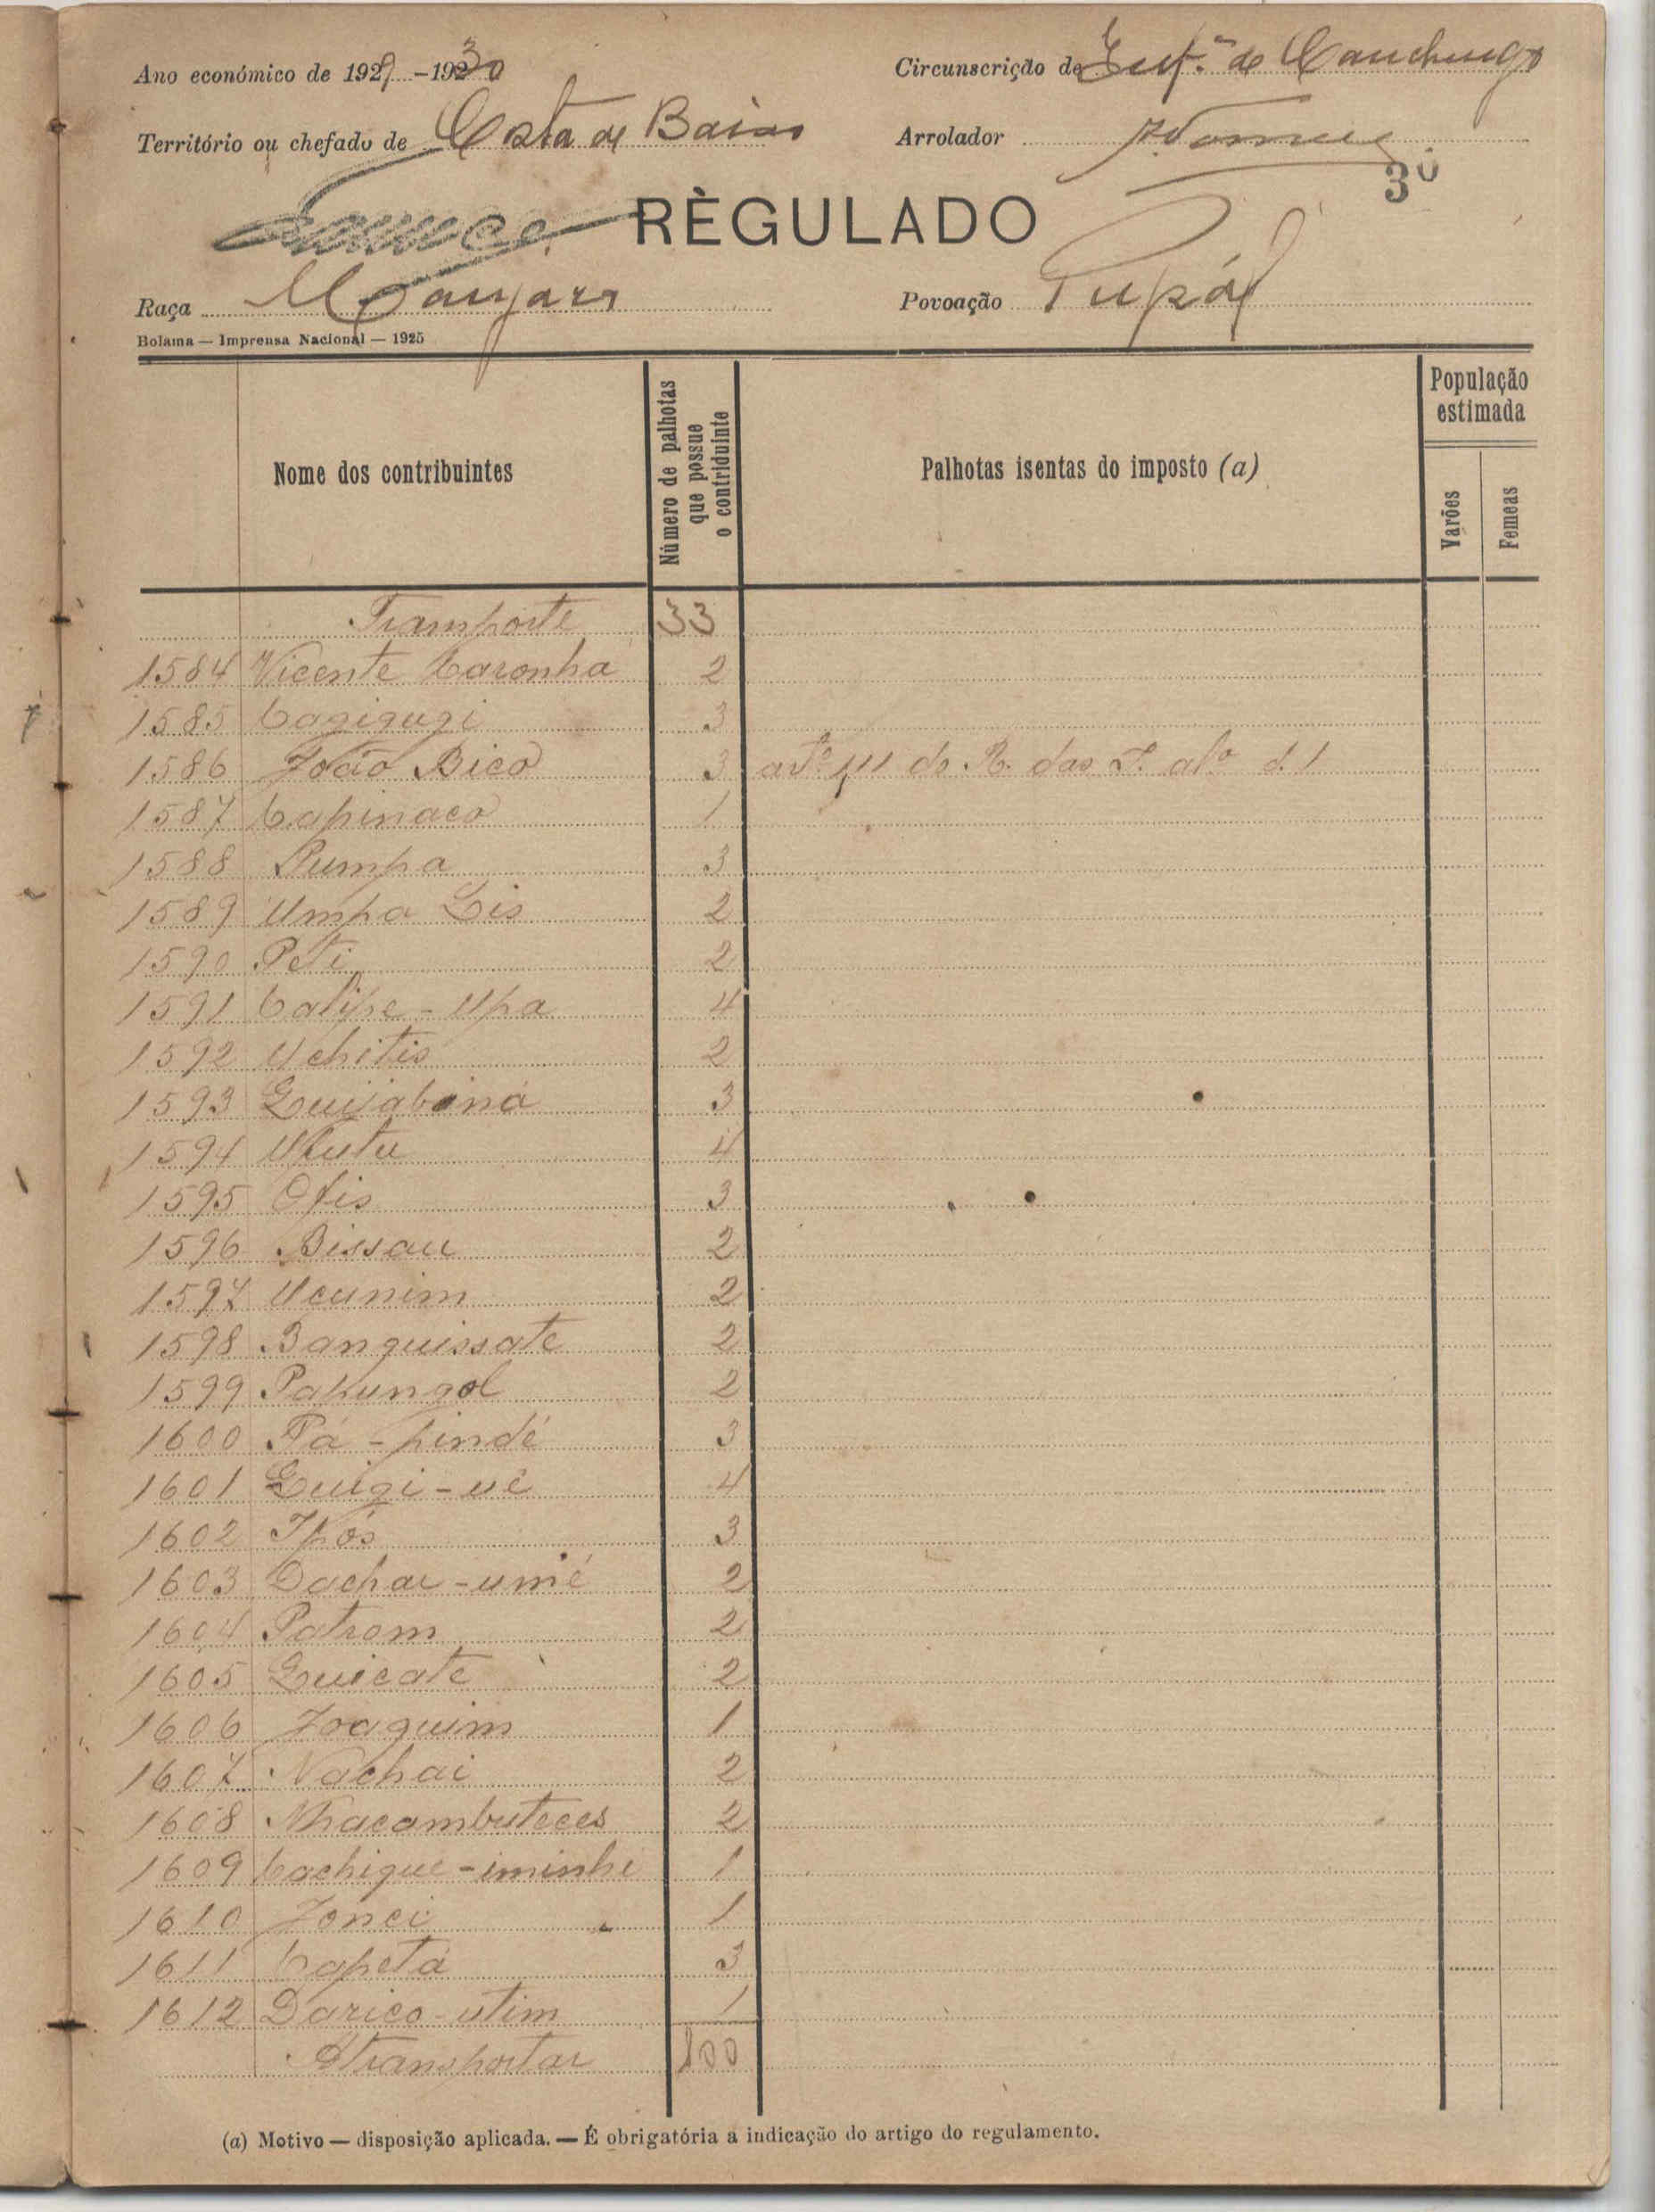 Ano económico de 1929 -1930
Circunscrição de Int.ª de Canchungo
Território ou chefado de Costa de Baixo
Arrolador
30
RÈGULADO
Raça Manjaca
Povoação
Bolama — Imprensa Nacional — 1925
Nome dos contribuintes
Número de palhotas que possue o contriduinte
Palhotas isentas do imposto (a)
População estimada
Varões
Femeas
Transporte 33
1584 Vicente Caronha 2
1585 Cagigugi 3
1586 João Bico 3 do R. das P. al.ª d. 1
1587 Capinaco 1
1588 Pumpa 3
1589 Umpa Lis 2
1590 Peti 2
1591 Calipe - Upa 4
1592 Uchitis 2
1593 Quijaboná 3
1594 4
1595 3
1596 Bissau 2
1597 Ucunim 2
1598 Banquissate 2
1599 Papungol 2
1600 Pá - pindé 3
1601 Quigi - ué 4
1602 Ipós 3
1603 Dachar - umé 2
1604 Patrom 2
1605 Quicate 2
1606 Joaquim 1
1607 Nachai 2
1608 Nhacambuteces 2
1609 Cachique - iminhe 1
1610 Jonci 1
1611 Capetá 3
1612 Darico - utim 1
A transportar 100
(a) Motivo — disposição aplicada. — É obrigatória a indicação do artigo do regulamento.